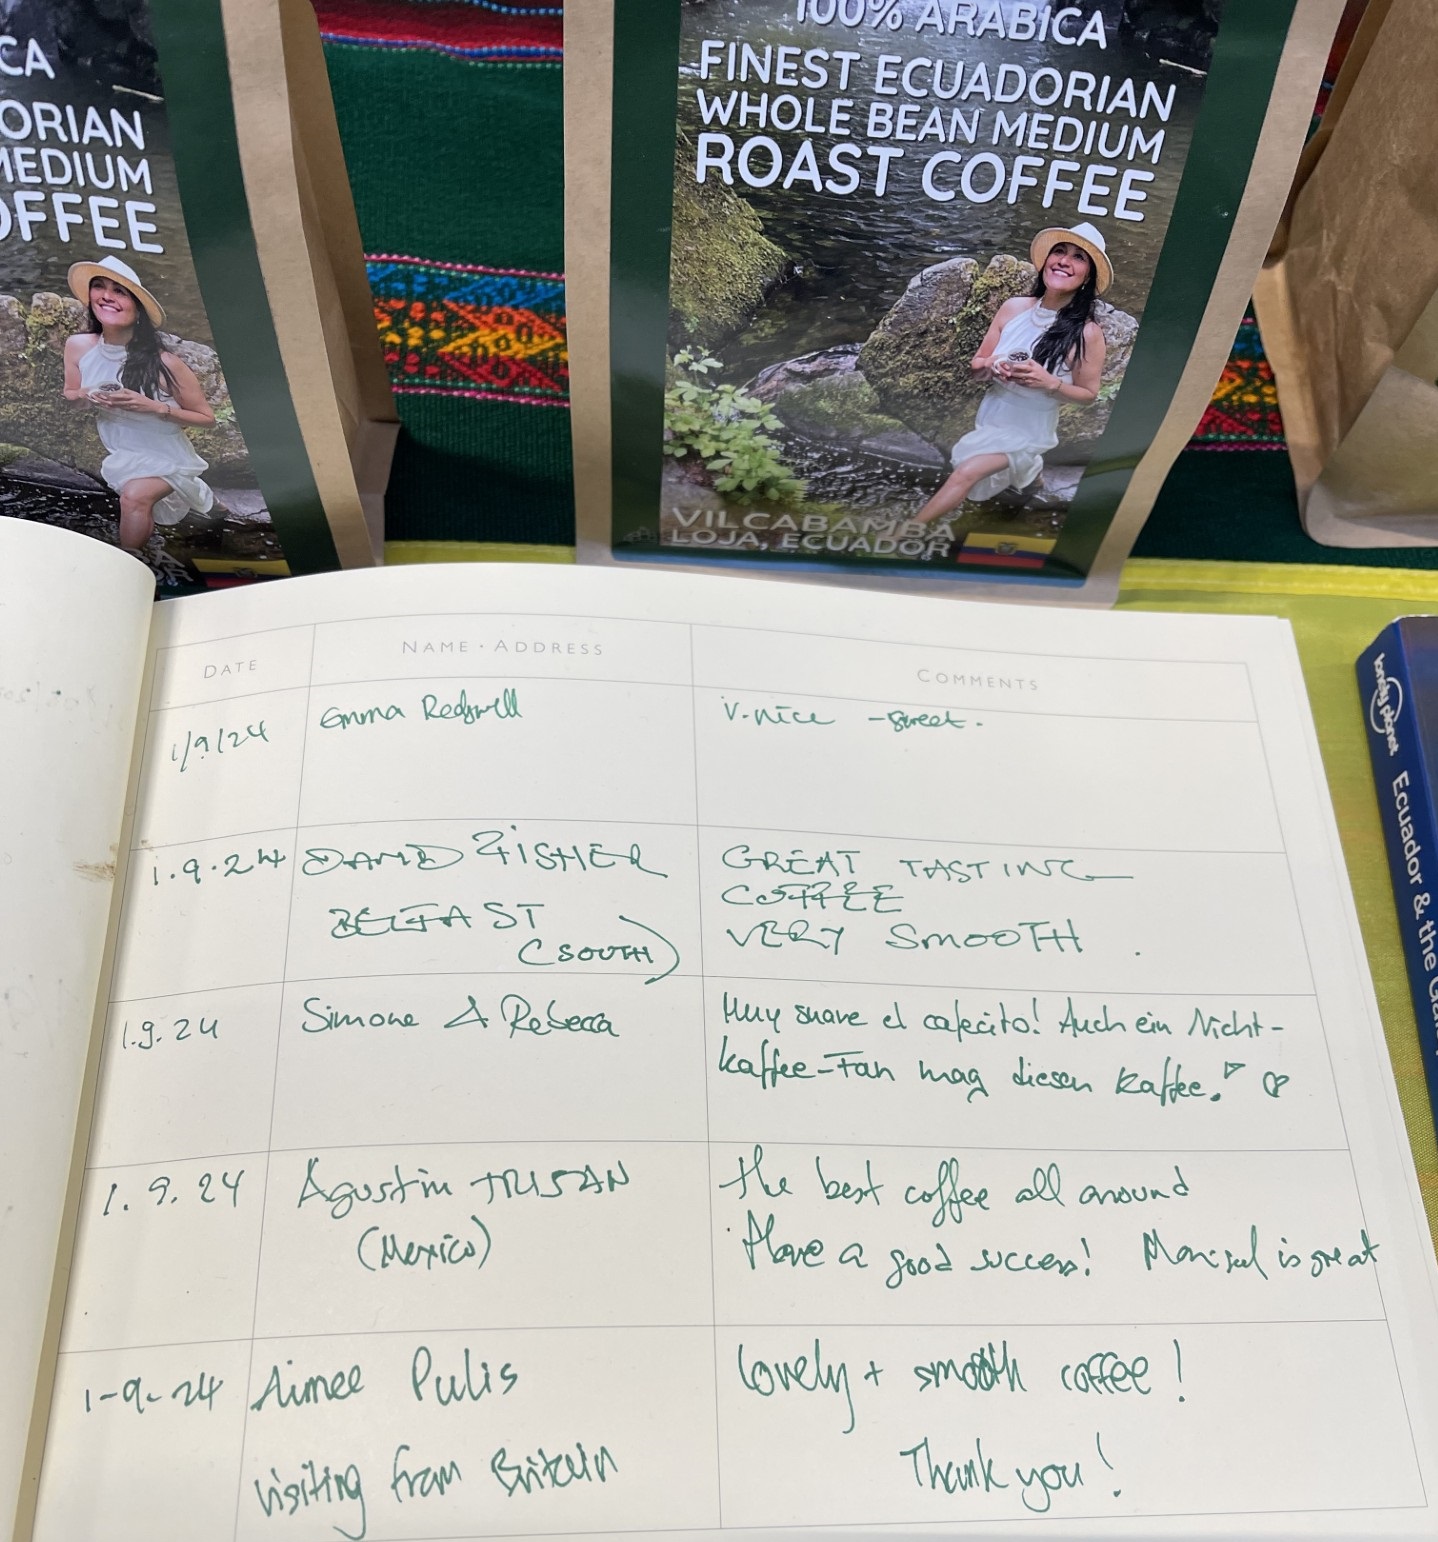 CA
ORIAN
MEDIUM
OFFEE
100% ARABICA
FINEST ECUADORIAN
WHOLE BEAN MEDIUM
ROAST COFFEE
VILCABAMBA
LOJA, ECUADOR
lonely planet Ecuador & the
DATE NAME · ADDRESS COMMENTS
1/9/24 Emma V. nice - sweet.
1.9.24 DAVID FISHER GREAT TASTING
COFFEE
BELFAST VERY SMOOTH.
(SOUTH)
1.9.24 Simone & Rebecca Muy suave el cafecito! Auch ein Nicht-
kaffee-Fan mag diesen Kaffee.
1. 9. 24 Agustin the best coffee all around
(Mexico) Have a good success! Marisol is great
1-9-24 Aimee Pulis Lovely + smooth coffee!
visiting from Britain Thank you!